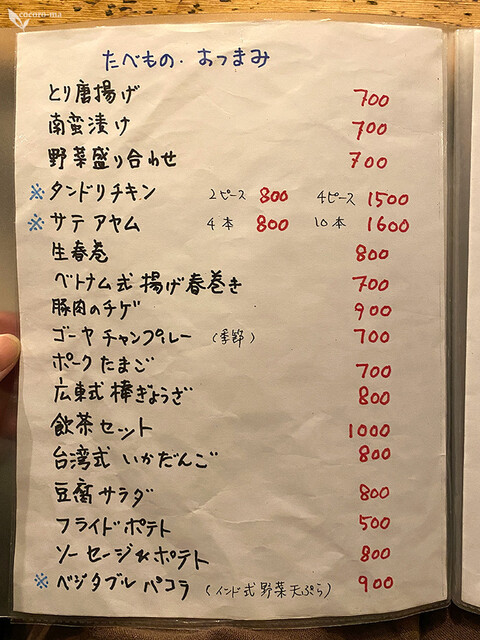 cocoro-ma
たべもの・おつまみ
とり唐揚げ 700
南蛮漬け 700
野菜盛り合わせ 700
※タンドリチキン 2ピース 800 4ピース 1500
※サテ アヤム 4本 800 10本 1600
生春巻 800
ベトナム式 揚げ春巻き 700
豚肉のチゲ 900
ゴーヤ チャンプルー (季節) 700
ポークたまご 700
広東式 棒ぎょうざ 800
飲茶セット 1000
台湾式 いかだんご 800
豆腐サラダ 800
フライドポテト 500
ソーセージ&ポテト 800
※ベジタブル パコラ (インド式野菜天ぷら) 900